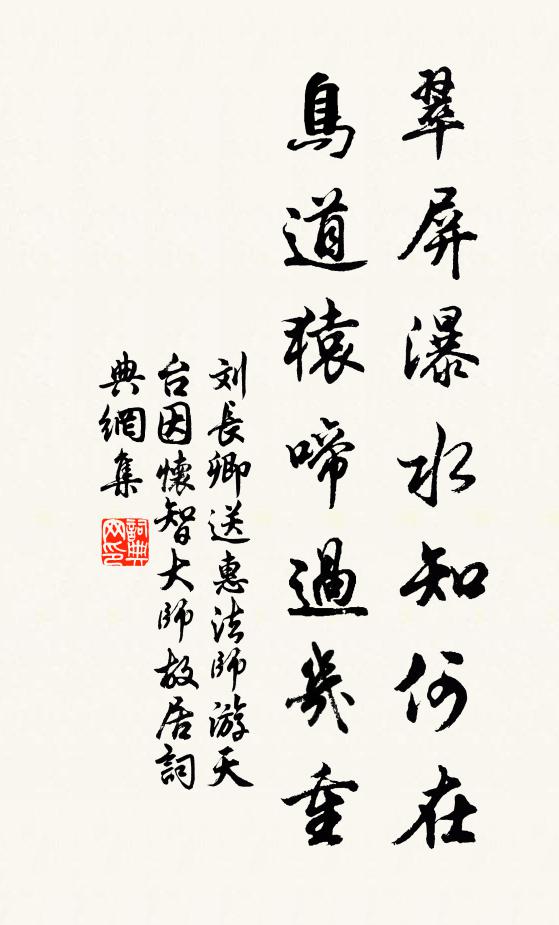 翠屏瀑水知何在
鳥道猿啼過幾重
刘長卿送惠法師游天
台因懷智大師故居詞
典網集
詞典
网印